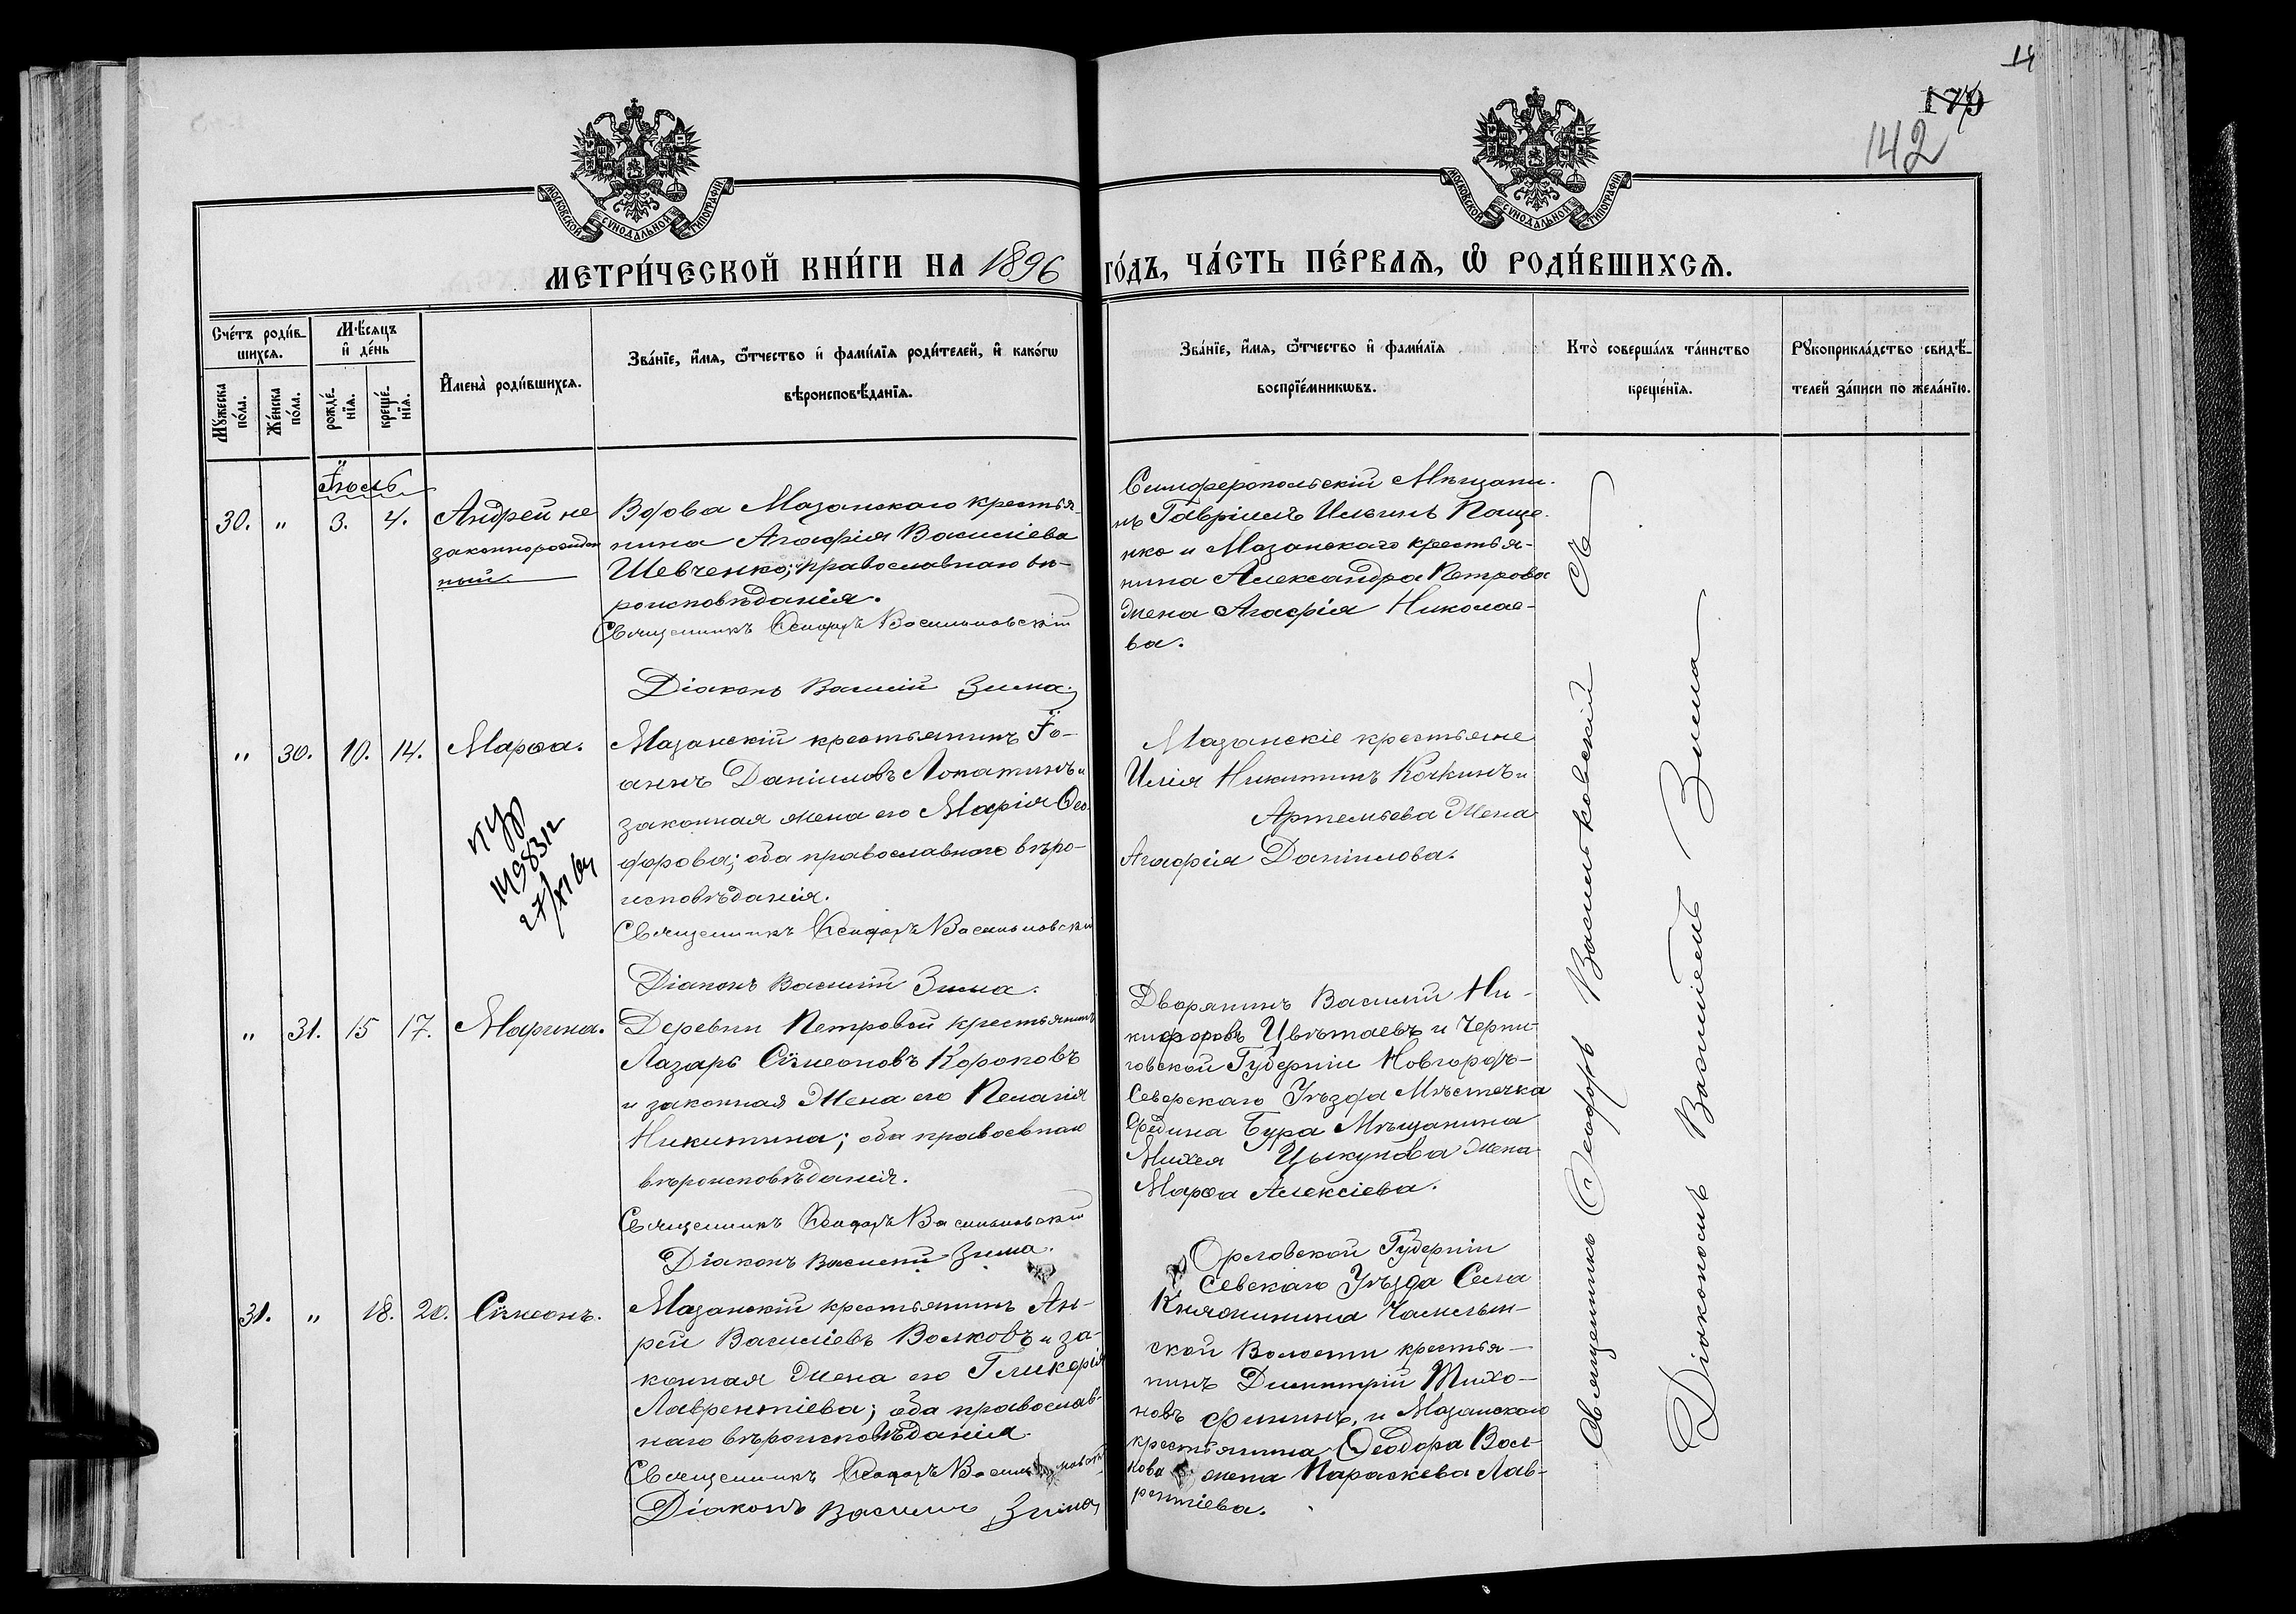 14
179
142
МОСКОВСКОЙ СѴНОДАЛЬНОЙ ТИПОГРАФІИ
МОСКОВСКОЙ СѴНОДАЛЬНОЙ ТИПОГРАФІИ
МЕТРИ́ЧЕСКОЙ КНИ́ГИ НА 1896
ГО́ДЪ, ЧА́СТЬ ПЕ́РВАѦ, Ѽ РОДИ́ВШИХСѦ.
Сче́тъ роди́в-
шихсѧ.
Мꙋ́жеска по́ла.
Же́нска по́ла.
М́ѣсѧцъ и҆ де́нь
рожде́-нїѧ.
креще́-нїѧ.
И҆мена̀ роди́вшихсѧ.
Зва́нїе, и҆́мѧ, ѻ҆́тчество и҆ фами́лїѧ роди́телей, и҆ како́гѡ
вѣроисповѣ́данїѧ.
Зва́нїе, и҆́мѧ, ѻ҆́тчество и҆ фами́лїѧ
воспрїе́мникѡвъ.
Кто̀ соверша́лъ та́инство
креще́нїѧ.
Рꙋкоприкла́дство свидѣ́-
телей за́писи по жела́нїю.
Іюль
30. " 3. 4.
Андрей не
законнорожден
ный
Вдова Мазанскаго крестья-
нина Агафія Василіева
Шевченко; православнаго вѣ-
роисповѣданія.
Священникъ Ѳеодоръ Васильковскій
Діаконъ Василій Зима.
Симферопольскій Мѣщани-
нъ Гавріилъ Ильинъ Паще-
нко и Мазанскаго крестья-
нина Александра Петрова
жена Агафія Николае-
ва.
" 30. 10. 14. Марѳа.
Мазанскій крестьянинъ Іо-
аннъ Даніиловъ Лопатинъ и
законная жена его Марія Ѳео-
дорова; оба православнаго вѣро-
исповѣданія.
Священникъ Ѳеодоръ Васильковскій
Діаконъ Василій Зима.
Мазанскіе крестьяне
Илія Никитинъ Кочкинъ и
Артемьева жена
Агафія Даніилова.
27/XI 64
" 31. 15 17. Марина.
Деревни Петровой крестьянинъ
Лазарь Сѷмеоновъ Короповъ
и законная жена его Пелагія
Никитина; оба правосвнаго
вѣроисповѣданія.
Священникъ Ѳеодоръ Васильковскій
Діаконъ Василій Зима.
Дворянинъ Василій Ни-
кифоровъ Цвѣтаевъ и Черни-
говской Губерніи Новгородъ-
Северскаго Уѣзда Мѣстечка
Средина Буда Мѣщанина
Михея Цыкунова жена
Марѳа Алексіева.
31. " 18. 20. Сѷмеонъ.
Мазанскій крестьянинъ Ан-
рей Василіевъ Волковъ и за-
конная жена его Гликерія
Лаврентіева; оба православ-
наго вѣроисповѣданія.
Священникъ Ѳеодоръ Васильковскій
Діаконъ Василій Зима
Орловской Губерніи
Севскаго Уѣзда Села
Княгинина
ской Волости крестья-
нинъ Димитрій Тихо-
новъ Фининъ, и Мазанскаго
крестьянина Ѳеодора Вол-
кова жена Параскева Лав-
рентіева.
Священникъ Ѳеодоръ Васильковскій съ
Діакономъ Василіемъ Зима